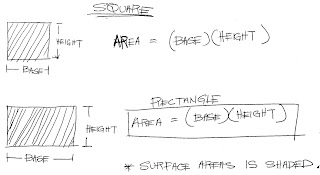 SQUARE
HEIGHT
AREA = (BASE)(HEIGHT)
BASE
RECTANGLE
HEIGHT
AREA = (BASE)(HEIGHT)
BASE
* SURFACE AREAS IS SHADED.